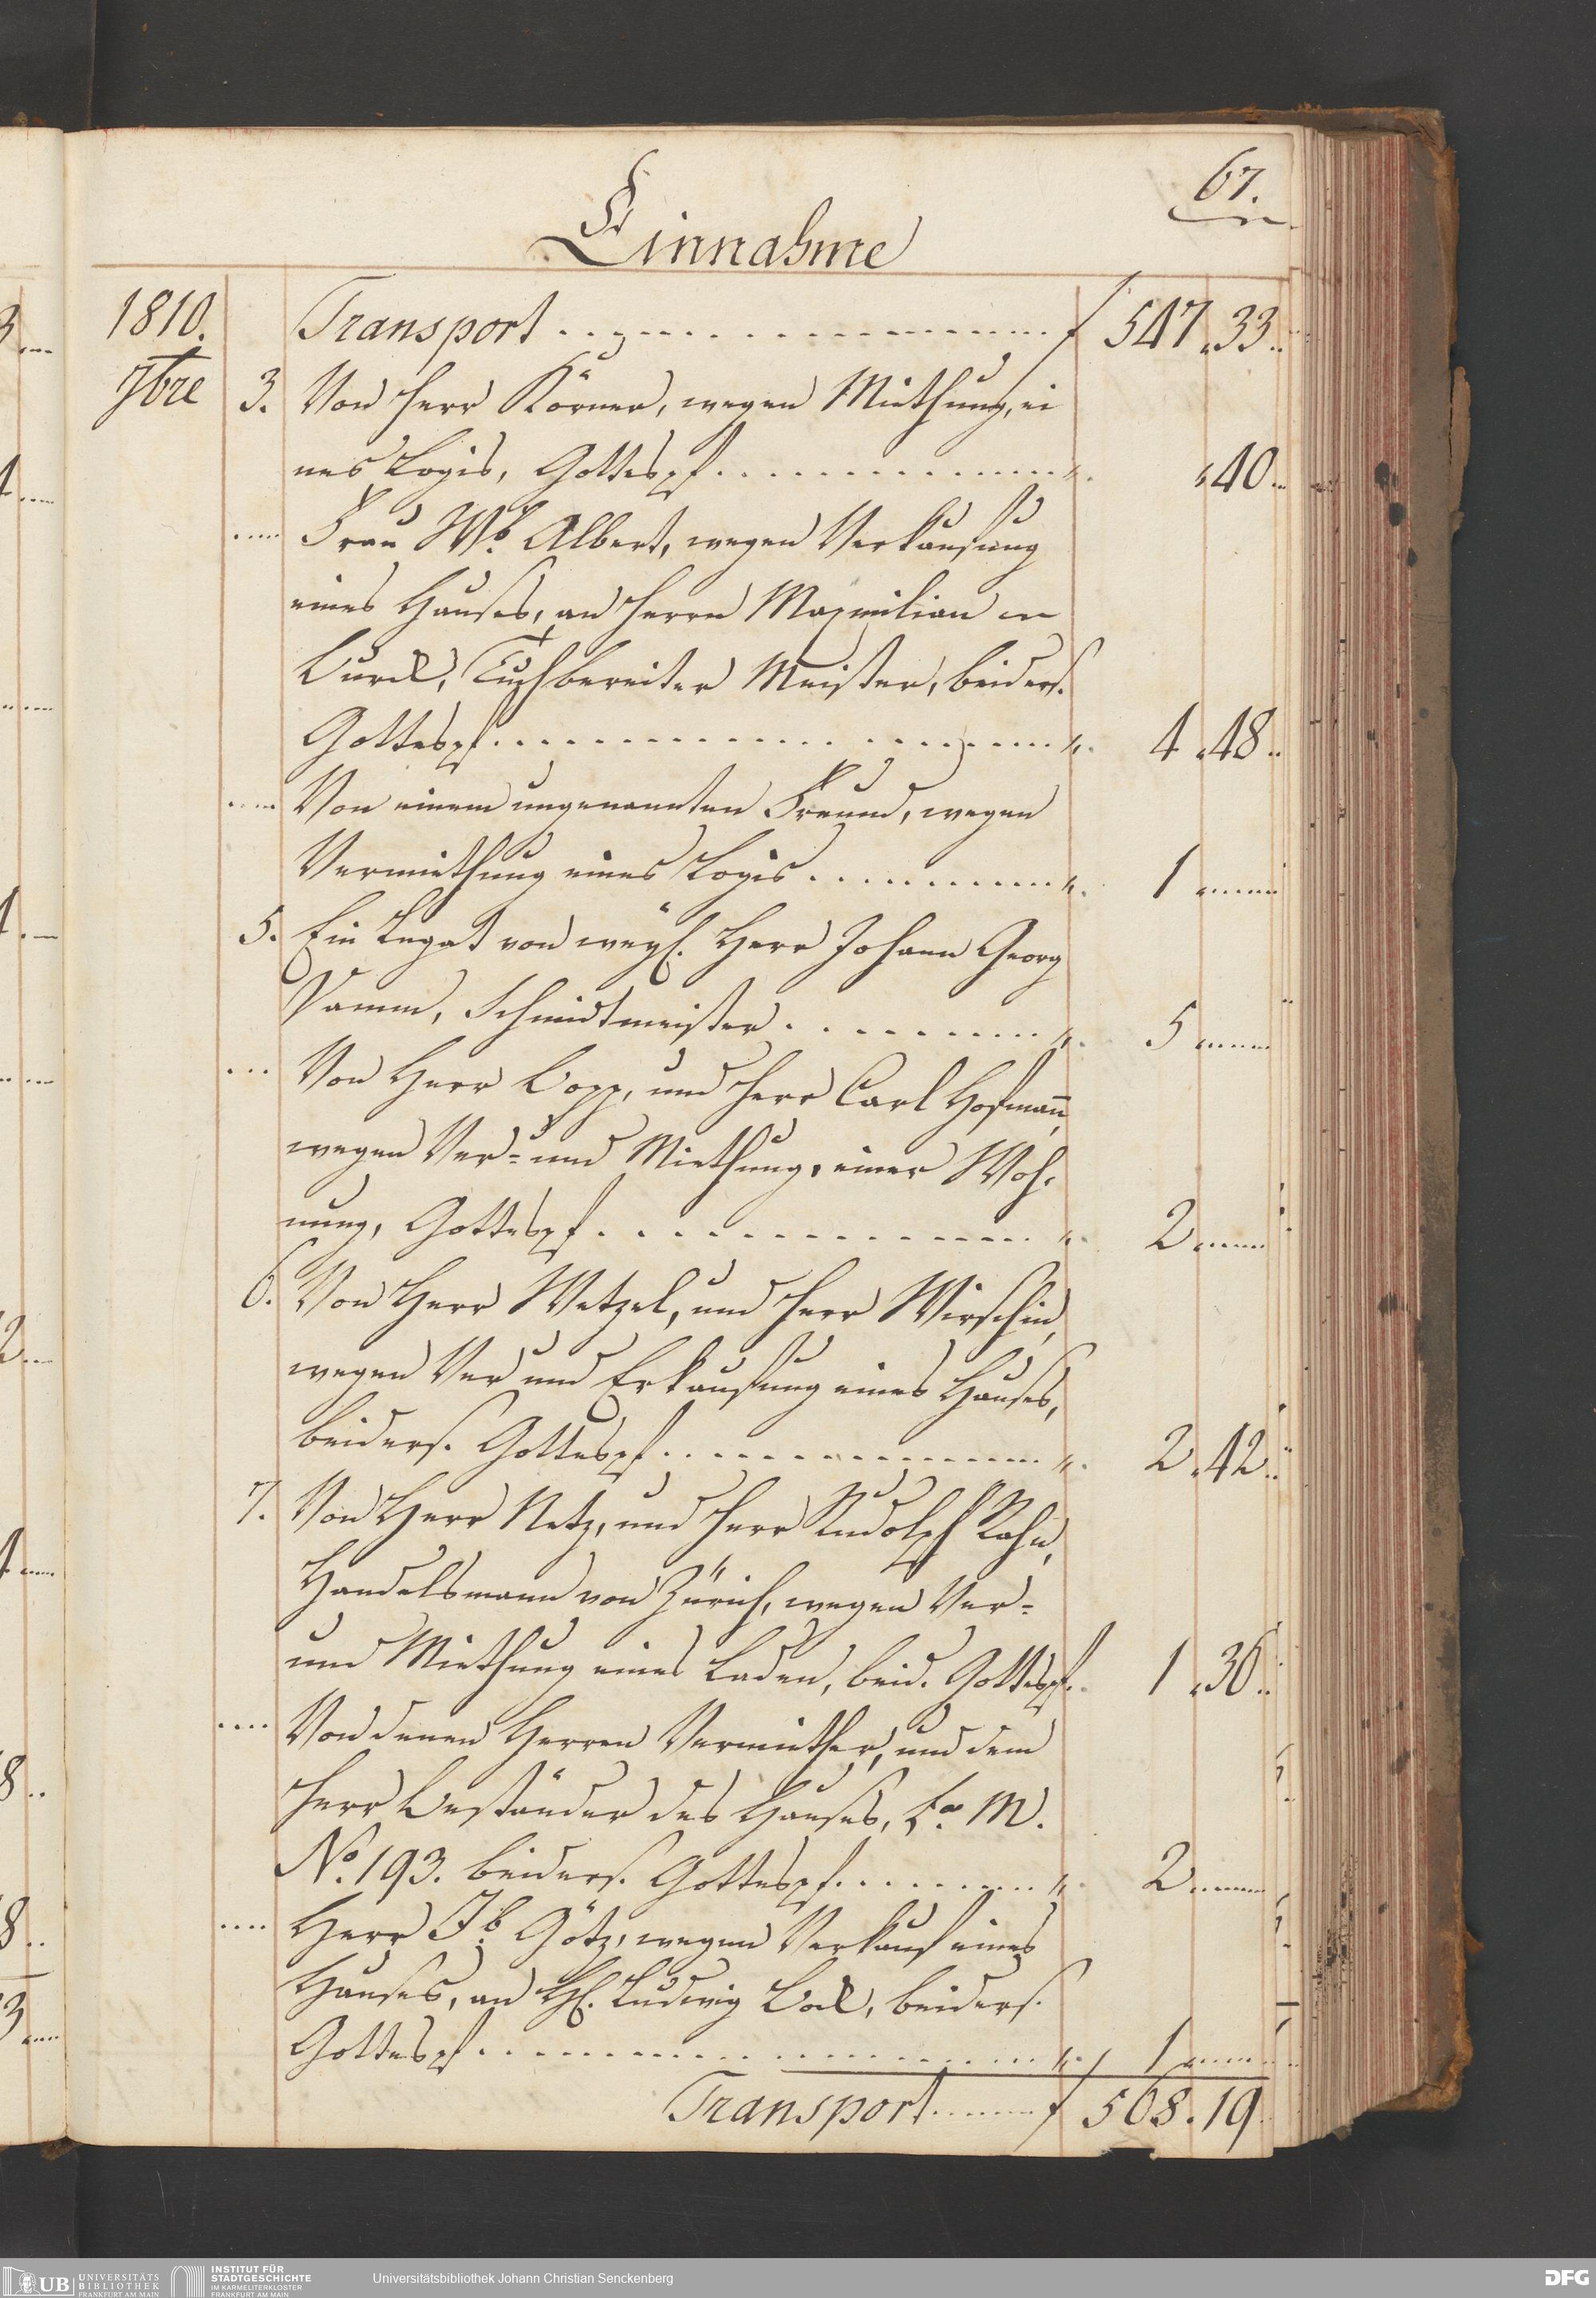 67.
Einnahme
1810. Transport . . . . . f 547 „ 33 ..
7bre 3. Von Herr Körner, wegen Miethung, ei
nes Logis, Gottespf. . . . . „ „ 40 ..
..... Frau Wb. Albert, wegen Verkaufung
eines Hauses, an Herrn Maximilian
Burck, Tuchbereiter Meister, beiders.
Gottespf. . . . . „ 4 „ 48 ..
..... Von einem ungenannten Freund, wegen
Vermiethung eines Logis . . . . . „ 1 .....
5. Ein Legat von weyl. Herr Johann Georg
Damm, Schmidtmeister . . . . . „ 5 .....
... Von Herr Bopp, und Herr Carl Hofmann,
wegen Ver- und Miethung, einer Woh-
nung, Gottespf. . . . . „ 2 .....
6. Von Herr Wetzel, und Herr Wirsching,
wegen Ver und Erkaufung eines Hauses,
beiders. Gottespf. . . . . „ 2 „ 42 ..
7. Von Herr Netz, und Herr Rudolph Rahn,
Handelsmann von Zürich, wegen Ver-
und Miethung eines Laden, beid. Gottespf. 1 „ 36 ..
.... Von denen Herren Vermiether, und dem
Herr Beständer des Hauses, La. M.
No. 193. beiders. Gottespf. . . . . „ 2 .....
.... Herr Jb. Götz, wegen Verkauf eines
Hauses, an H. Ludwig Bock, beiders.
Gottespf. . . . . „ 1 .....
Transport ..... f 568 . 19
UB UNIVERSITÄTS
BIBLIOTHEK
FRANKFURT AM MAIN
INSTITUT FÜR
STADTGESCHICHTE
IM KARMELITERKLOSTER
FRANKFURT AM MAIN
Universitätsbibliothek Johann Christian Senckenberg
DFG